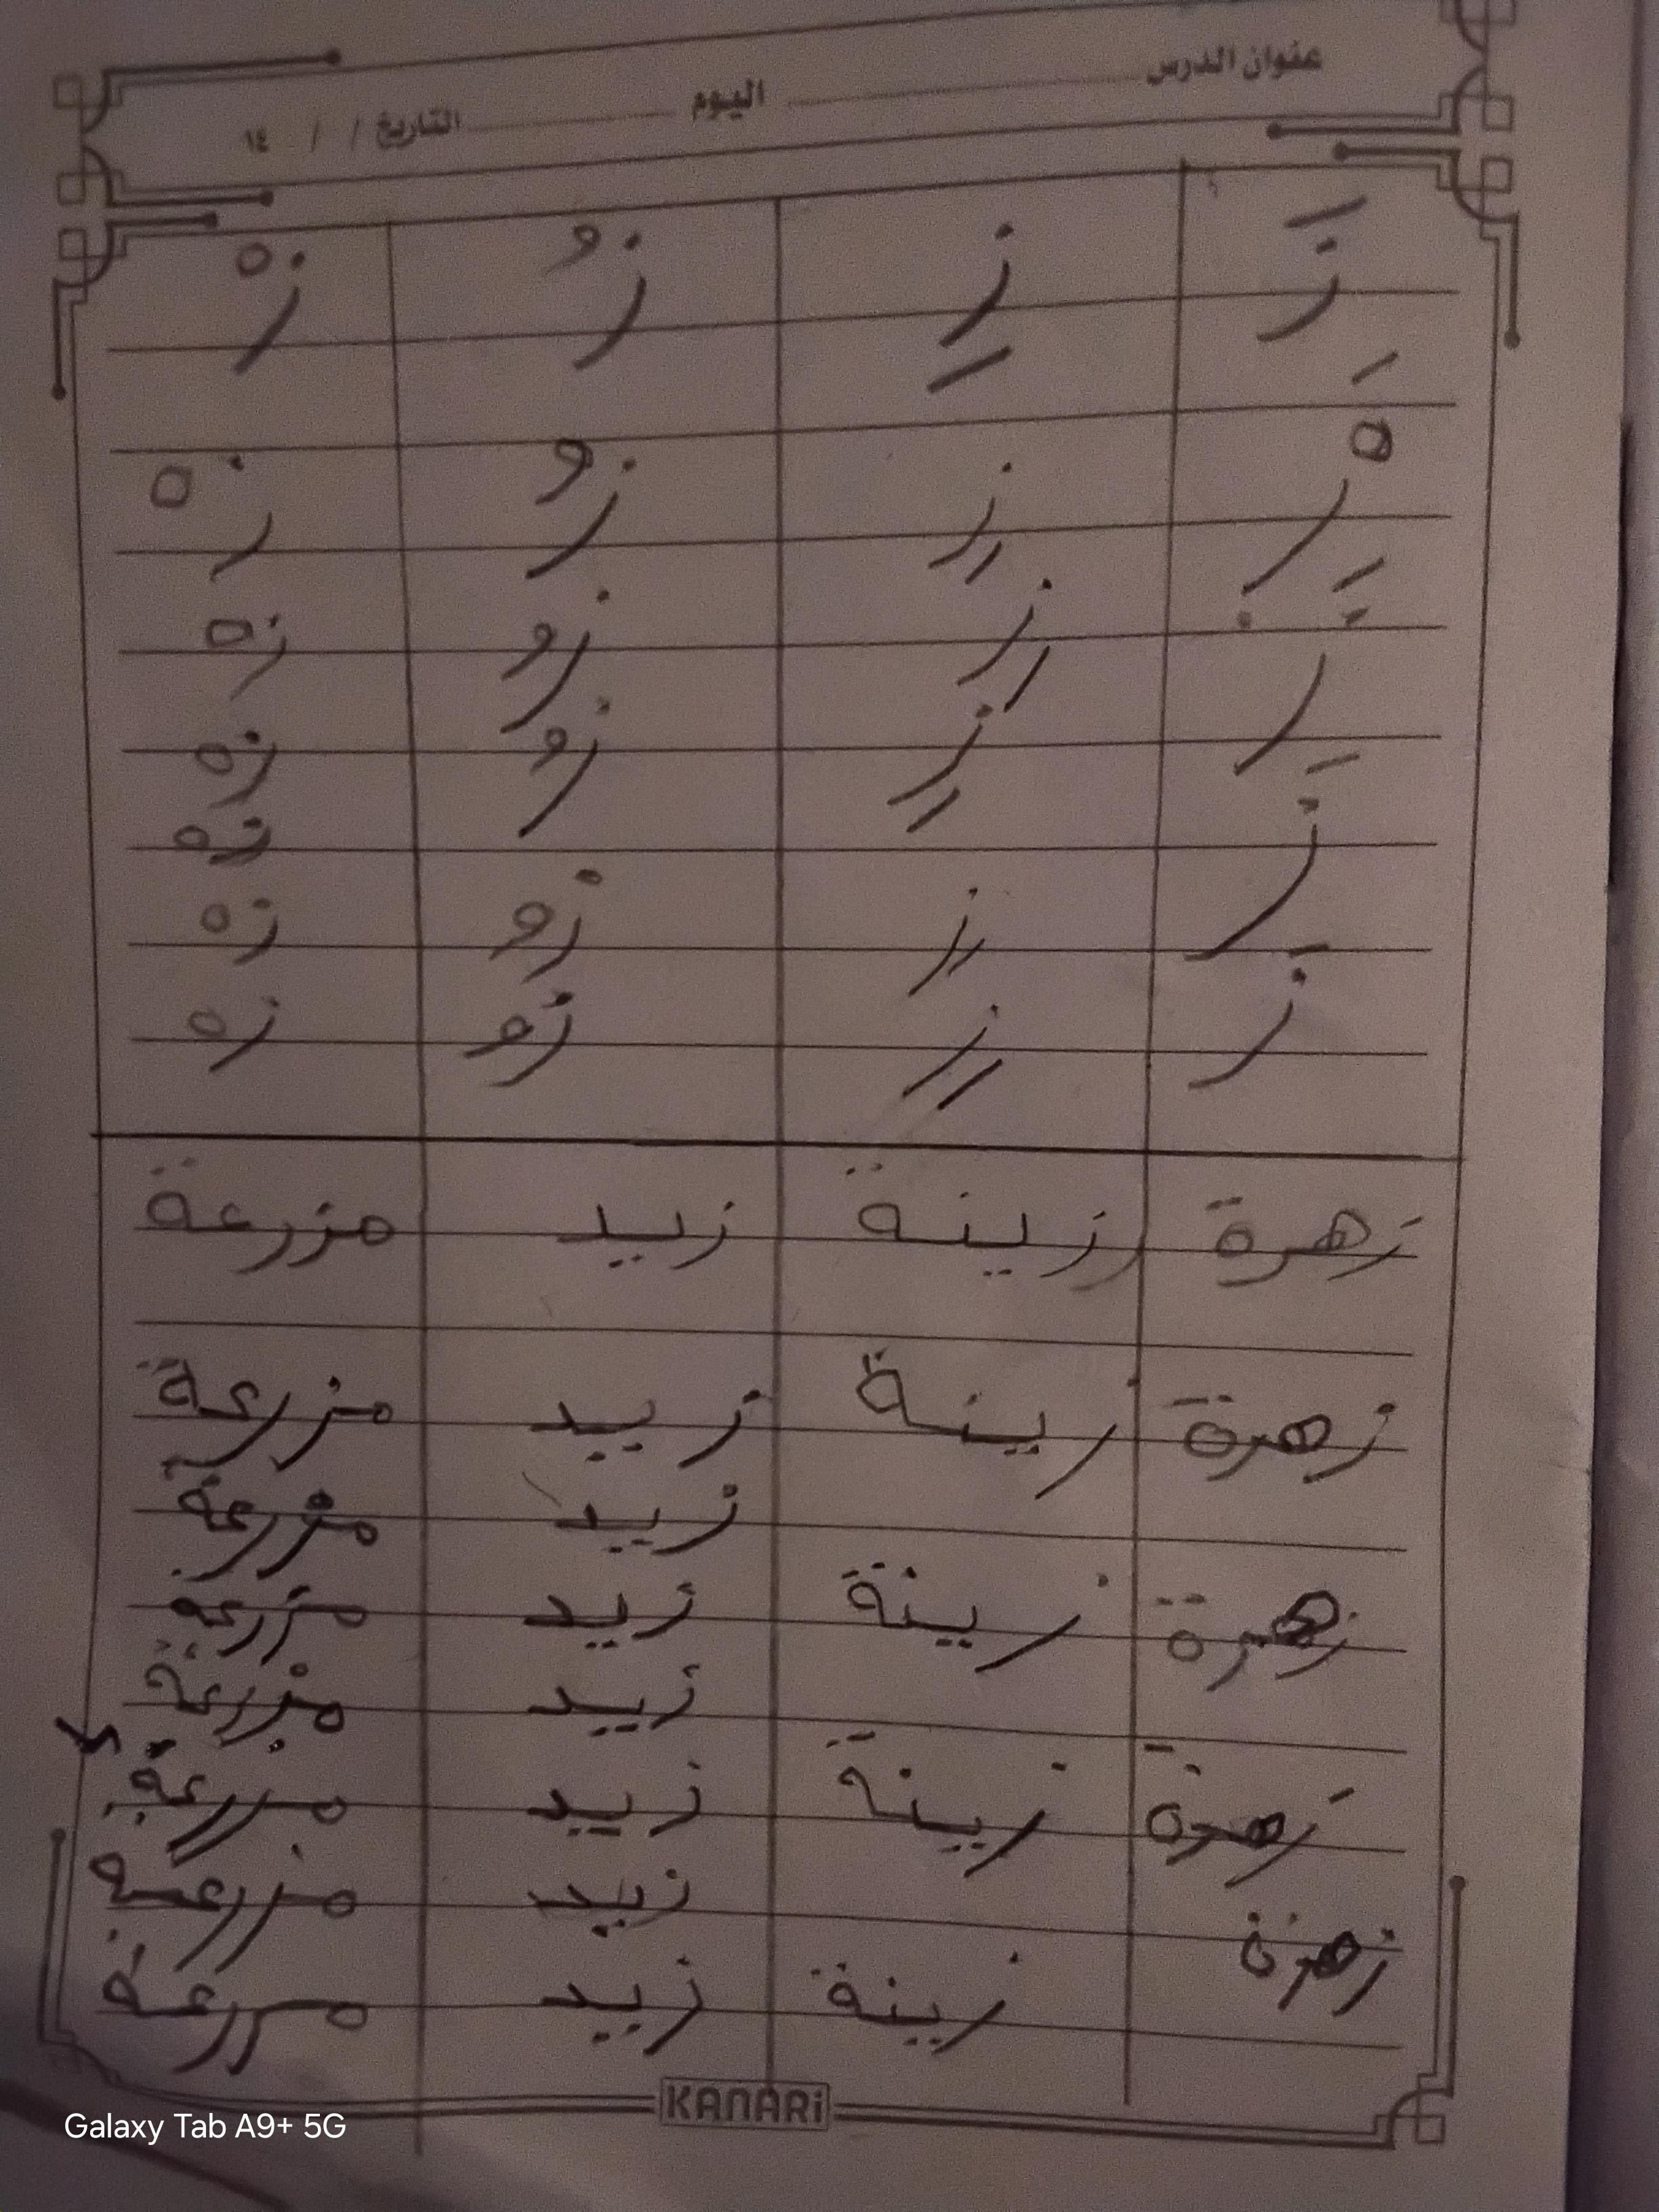 عنوان الدرس اليوم التاريخ / / ١٤
زَ زِ زُ زْ
زِ زُ زْ
زِ زُ زْ
زَ زِ زُ زْ
زْ
زَ زِ زُ زْ
زَ زِ زُ زْ
زهرة زينة زييد مزرعة
زهرة زينة زييد مزرعة
زييد مزرعة
زهرة زينة زييد مزرعة
زييد مزرعة
زهرة زينة زييد مزرعة
زييد مزرعة
زهرة زينة زييد مزرعة
KANARi
Galaxy Tab A9+ 5G